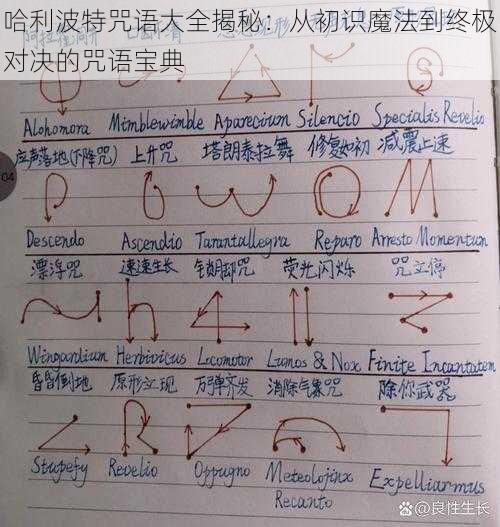 哈利波特咒语大全揭秘：从初识魔法到终极
对决的咒语宝典
Alohomora Mimblewimble Aparecium Silencio Specialis Revelio
应声落地(下降咒) 上升咒 塔朗泰拉舞 修复如初 减震止速
04
Descendo Ascendio Tarantallegra Reparo Arresto Momentum
漂浮咒 速速生长 锁腿咒 荧光闪烁 咒立停
Wingardium Herbivicus Locomotor Lumos & Nox Finite Incantatem
昏昏倒地 原形立现 万弹齐发 消除气象咒 除你武器
Stupefy Revelio Oppugno Meteolojinx Expelliarmus
Recanto
良性生长